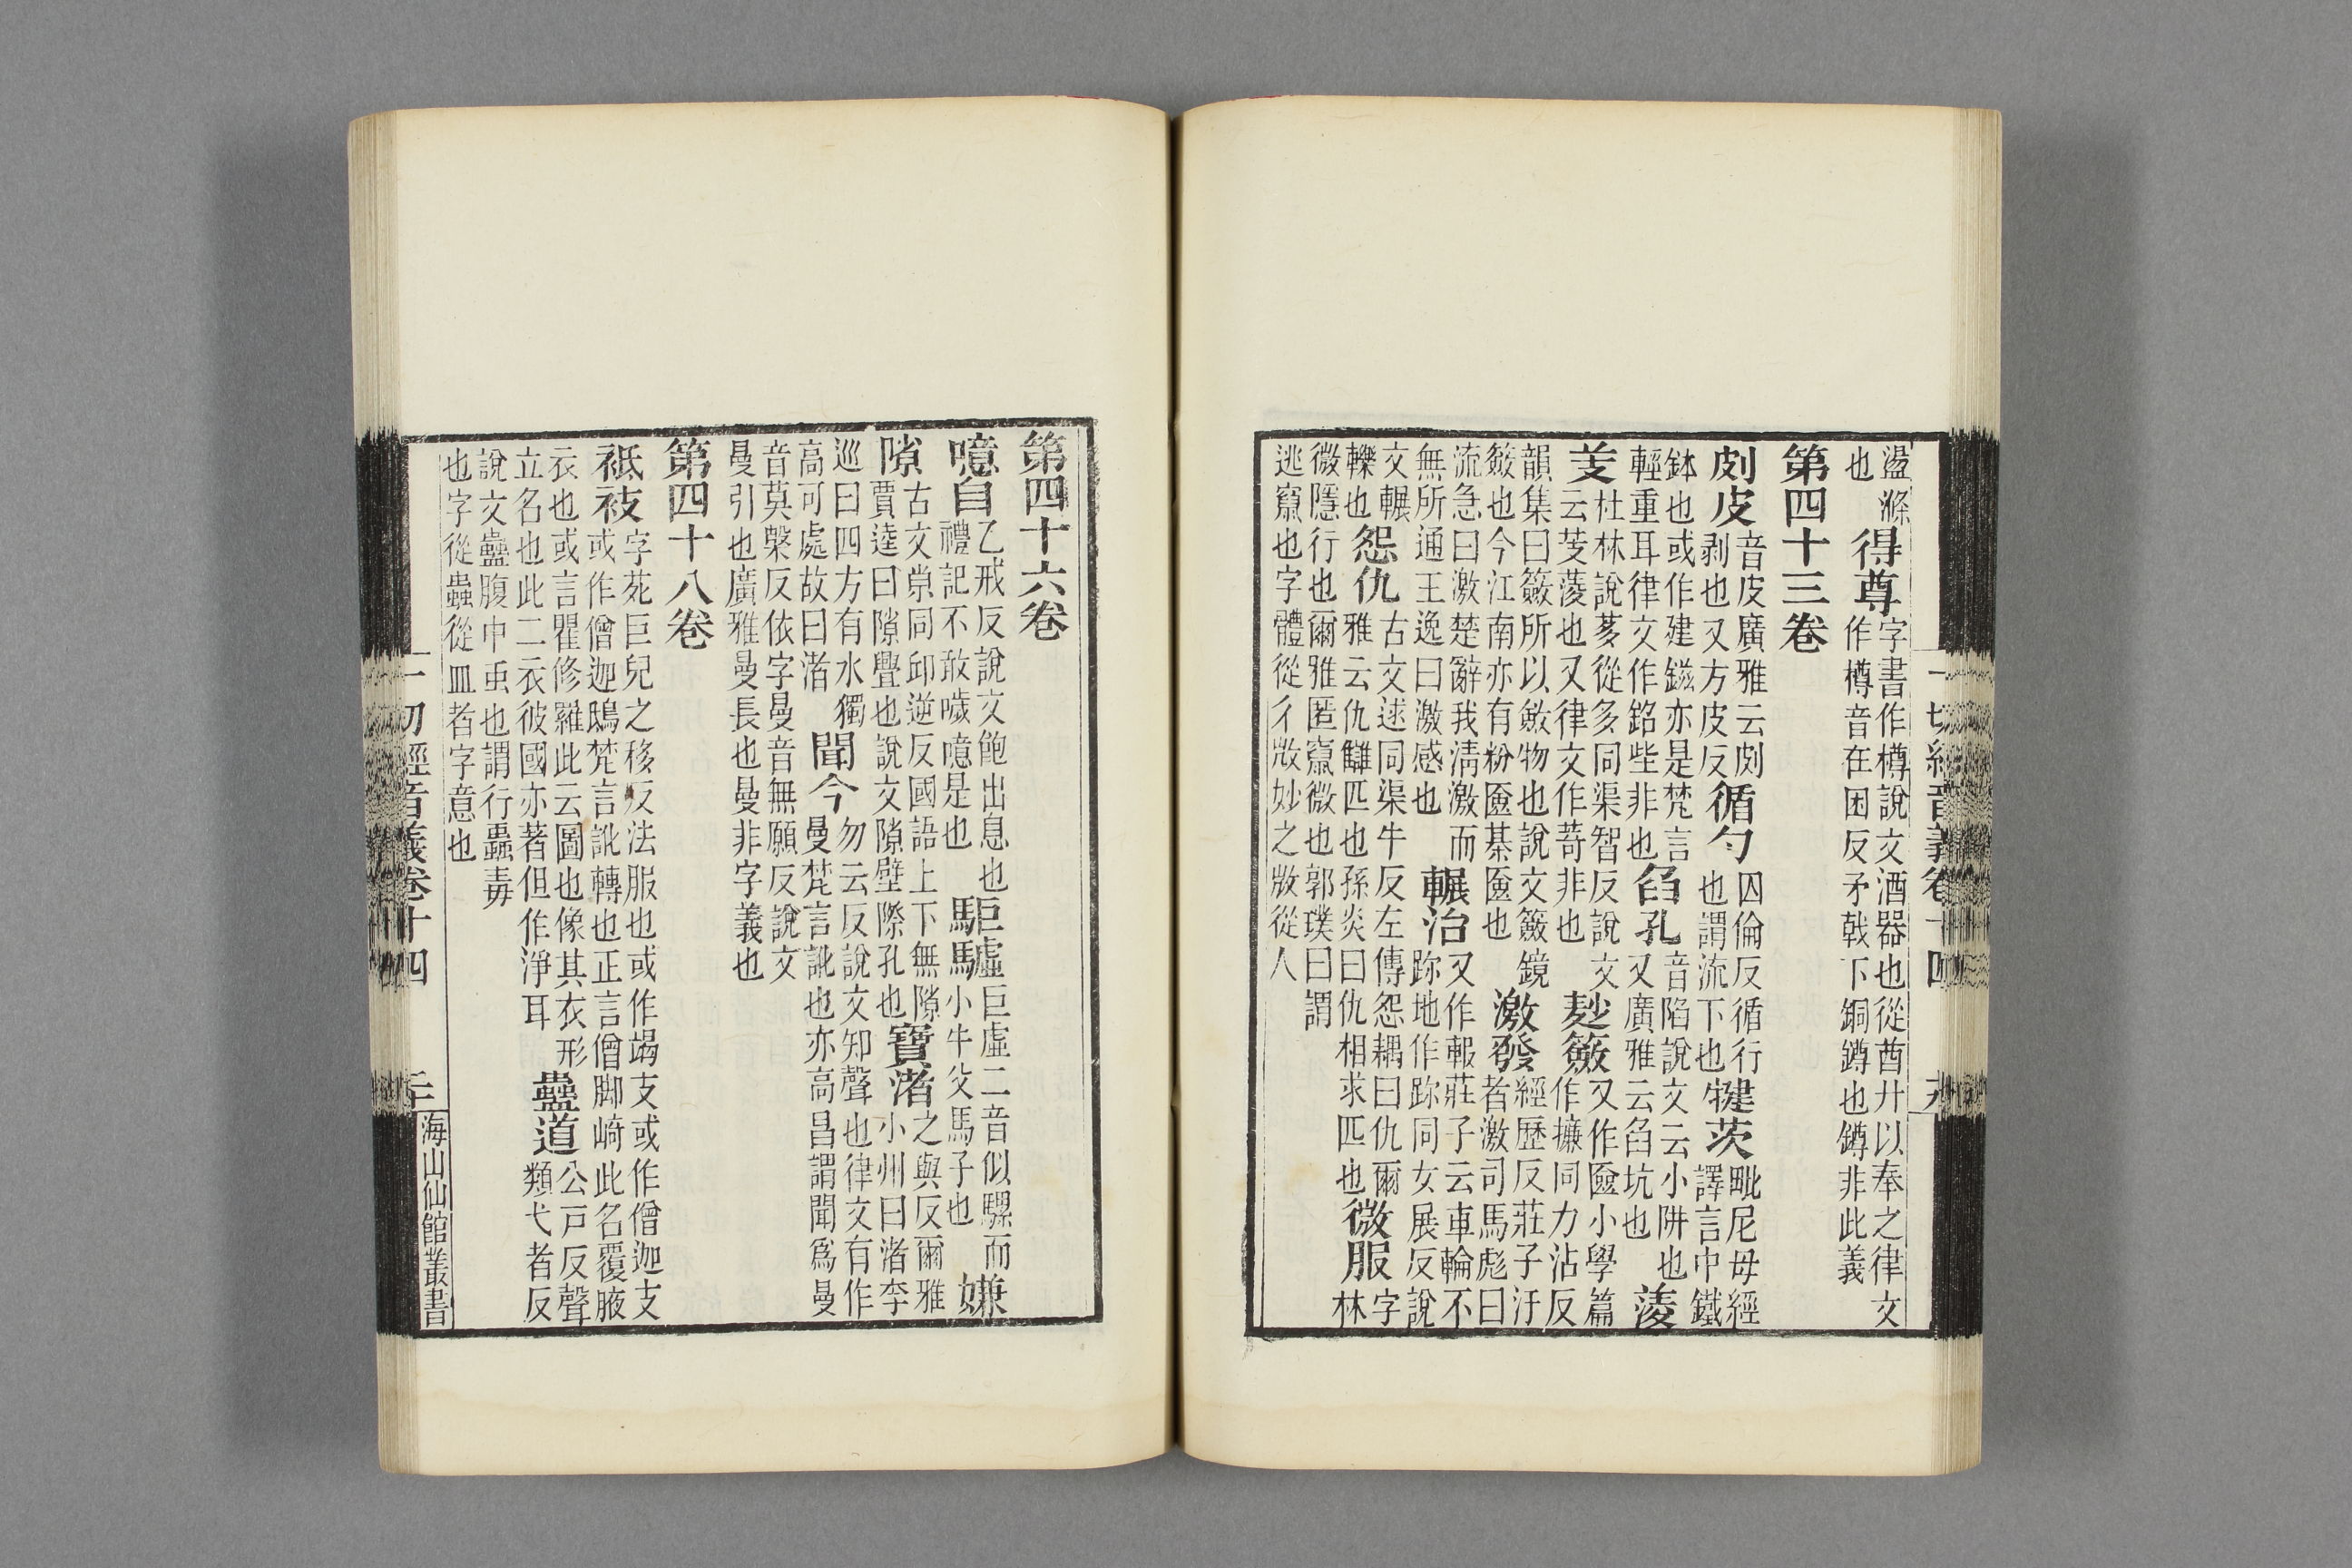 盪滌
也
得尊
字書作樽說文酒器也從酋廾以奉之律文
作樽音在困反矛戟下銅鐏也鐏非此義
第四十三卷
㓟皮
音皮廣雅云㓟
剥也又方皮反
循勺
囚倫反循行
也謂流下也
犍茨
毗尼毋經
譯言中鐵
鉢也或作建鎡亦是梵言
輕重耳律文作銘些非也
臽孔
音陷說文云小阱也
又廣雅云臽坑也
蔆
芰
杜林說茤從多同渠智反說文
云芰蔆也又律文作苛非也
麨籨
又作匳小學篇
作㩃同力沾反
韻集曰籨所以斂物也說文籨鏡
籢也今江南亦有粉匳棊匳也
激發
經歷反莊子汙
者激司馬彪曰
流急曰激楚辭我淸激而
無所通王逸曰激感也
輾治
又作䡅莊子云車輪不
跡地作跡同女展反說
文輾
轢也
怨仇
古文逑同渠牛反左傳怨耦曰仇爾
雅云仇讎匹也孫炎曰仇相求匹也
微服
字
林
微隱行也爾雅匿竄微也郭璞曰謂
逃竄也字體從彳𢼸妙之𢼸從人
一切經音義卷十四
第四十六卷
噫自
乙戒反說文飽出息也
禮記不敢噦噫是也
駏驉
巨虛二音似騾而
小牛父馬子也
嫌
隙
古文𡭽同卬逆反國語上下無隙
賈逵曰隙釁也說文隙壁際孔也
寶渚
之與反爾雅
小州曰渚李
巡曰四方有水獨
高可處故曰渚
聞今
勿云反說文知聲也律文有作
曼梵言訛也亦高昌謂聞爲曼
音莫槃反依字曼音無願反說文
曼引也廣雅曼長也曼非字義也
第四十八卷
祇衼
字苑巨兒之移反法服也或作竭支或作僧迦支
或作僧迦鵄梵言訛轉也正言僧脚崎此名覆腋
衣也或言瞿修羅此云圖也像其衣形
立名也此二衣彼國亦著但作淨耳
蠱道
公戸反聲
類弋者反
說文蠱腹中䖝也謂行蟲毒
也字從蟲從皿者字意也
一切經音義卷十四
海山仙館叢書